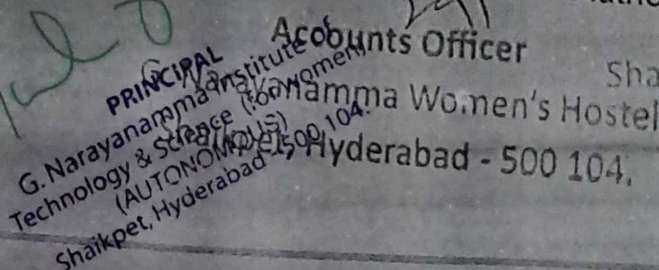 Accounts Officer
Sha
Women's Hostel
Hyderabad - 500 104.
PRINCIPAL
G. Narayanamma Institute of
Technology & Science (for women)
(AUTONOMOUS)
Shaikpet, Hyderabad - 500 104.